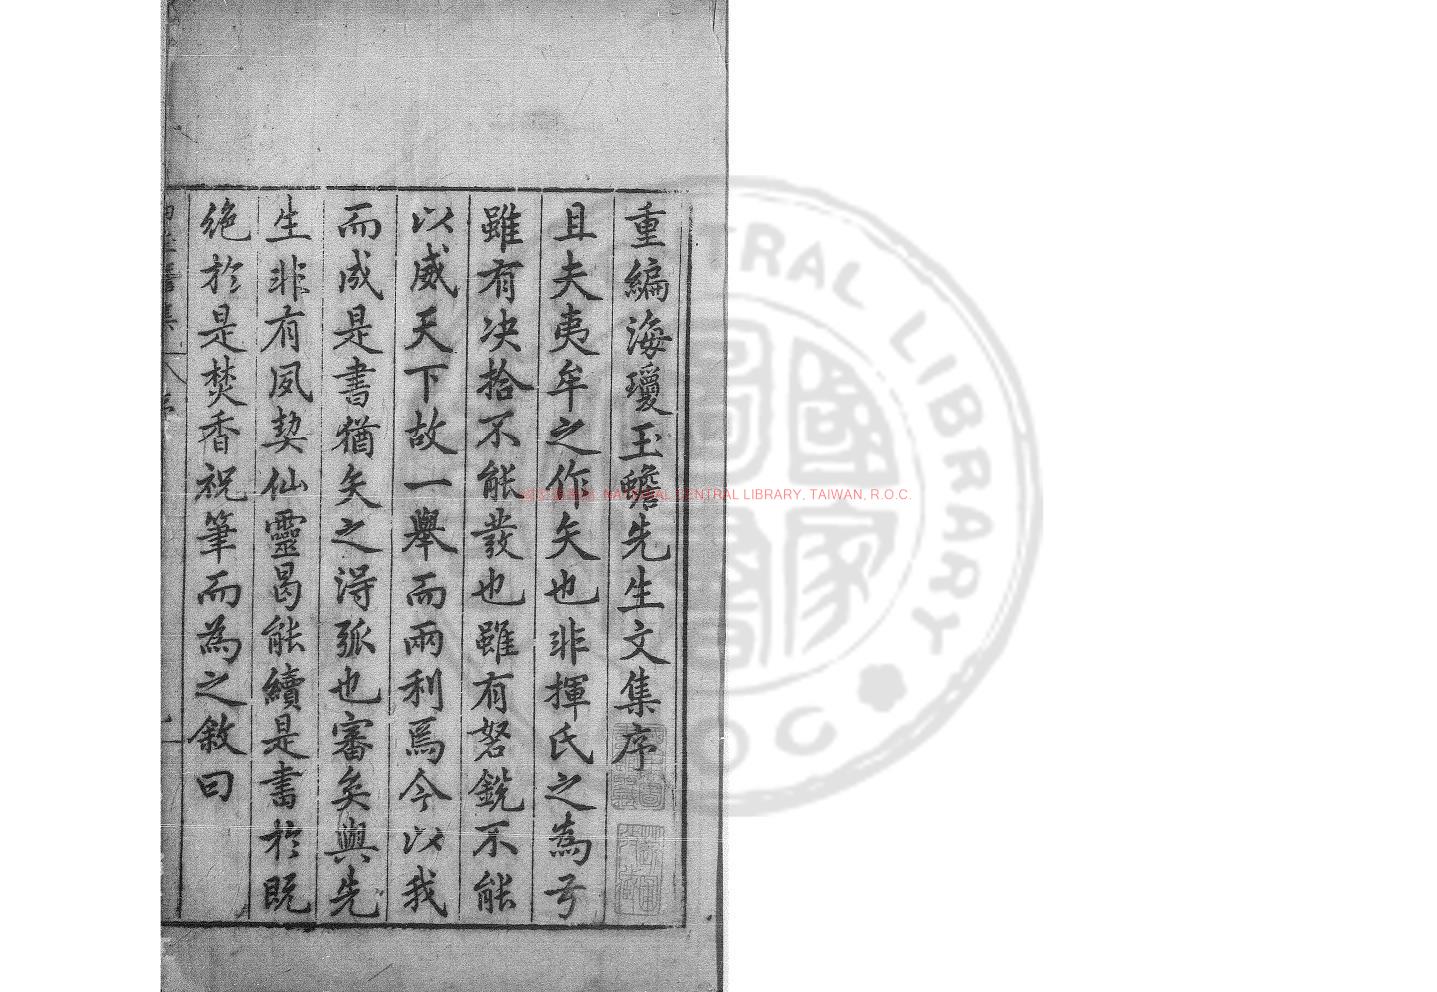 重編海瓊玉蟾先生文集序
且夫夷牟之作矢也非揮氏之為弓
雖有决拾不能發也雖有砮鋭不能
以威天下故一舉而兩利焉今以我
而成是書猶矢之得弧也審矣與先
生非有夙契仙靈曷能續是書於既
絶於是焚香祝筆而為之敘曰
NATIONAL CENTRAL LIBRARY, TAIWAN, R.O.C.
CENTRAL LIBRARY
國家圖書